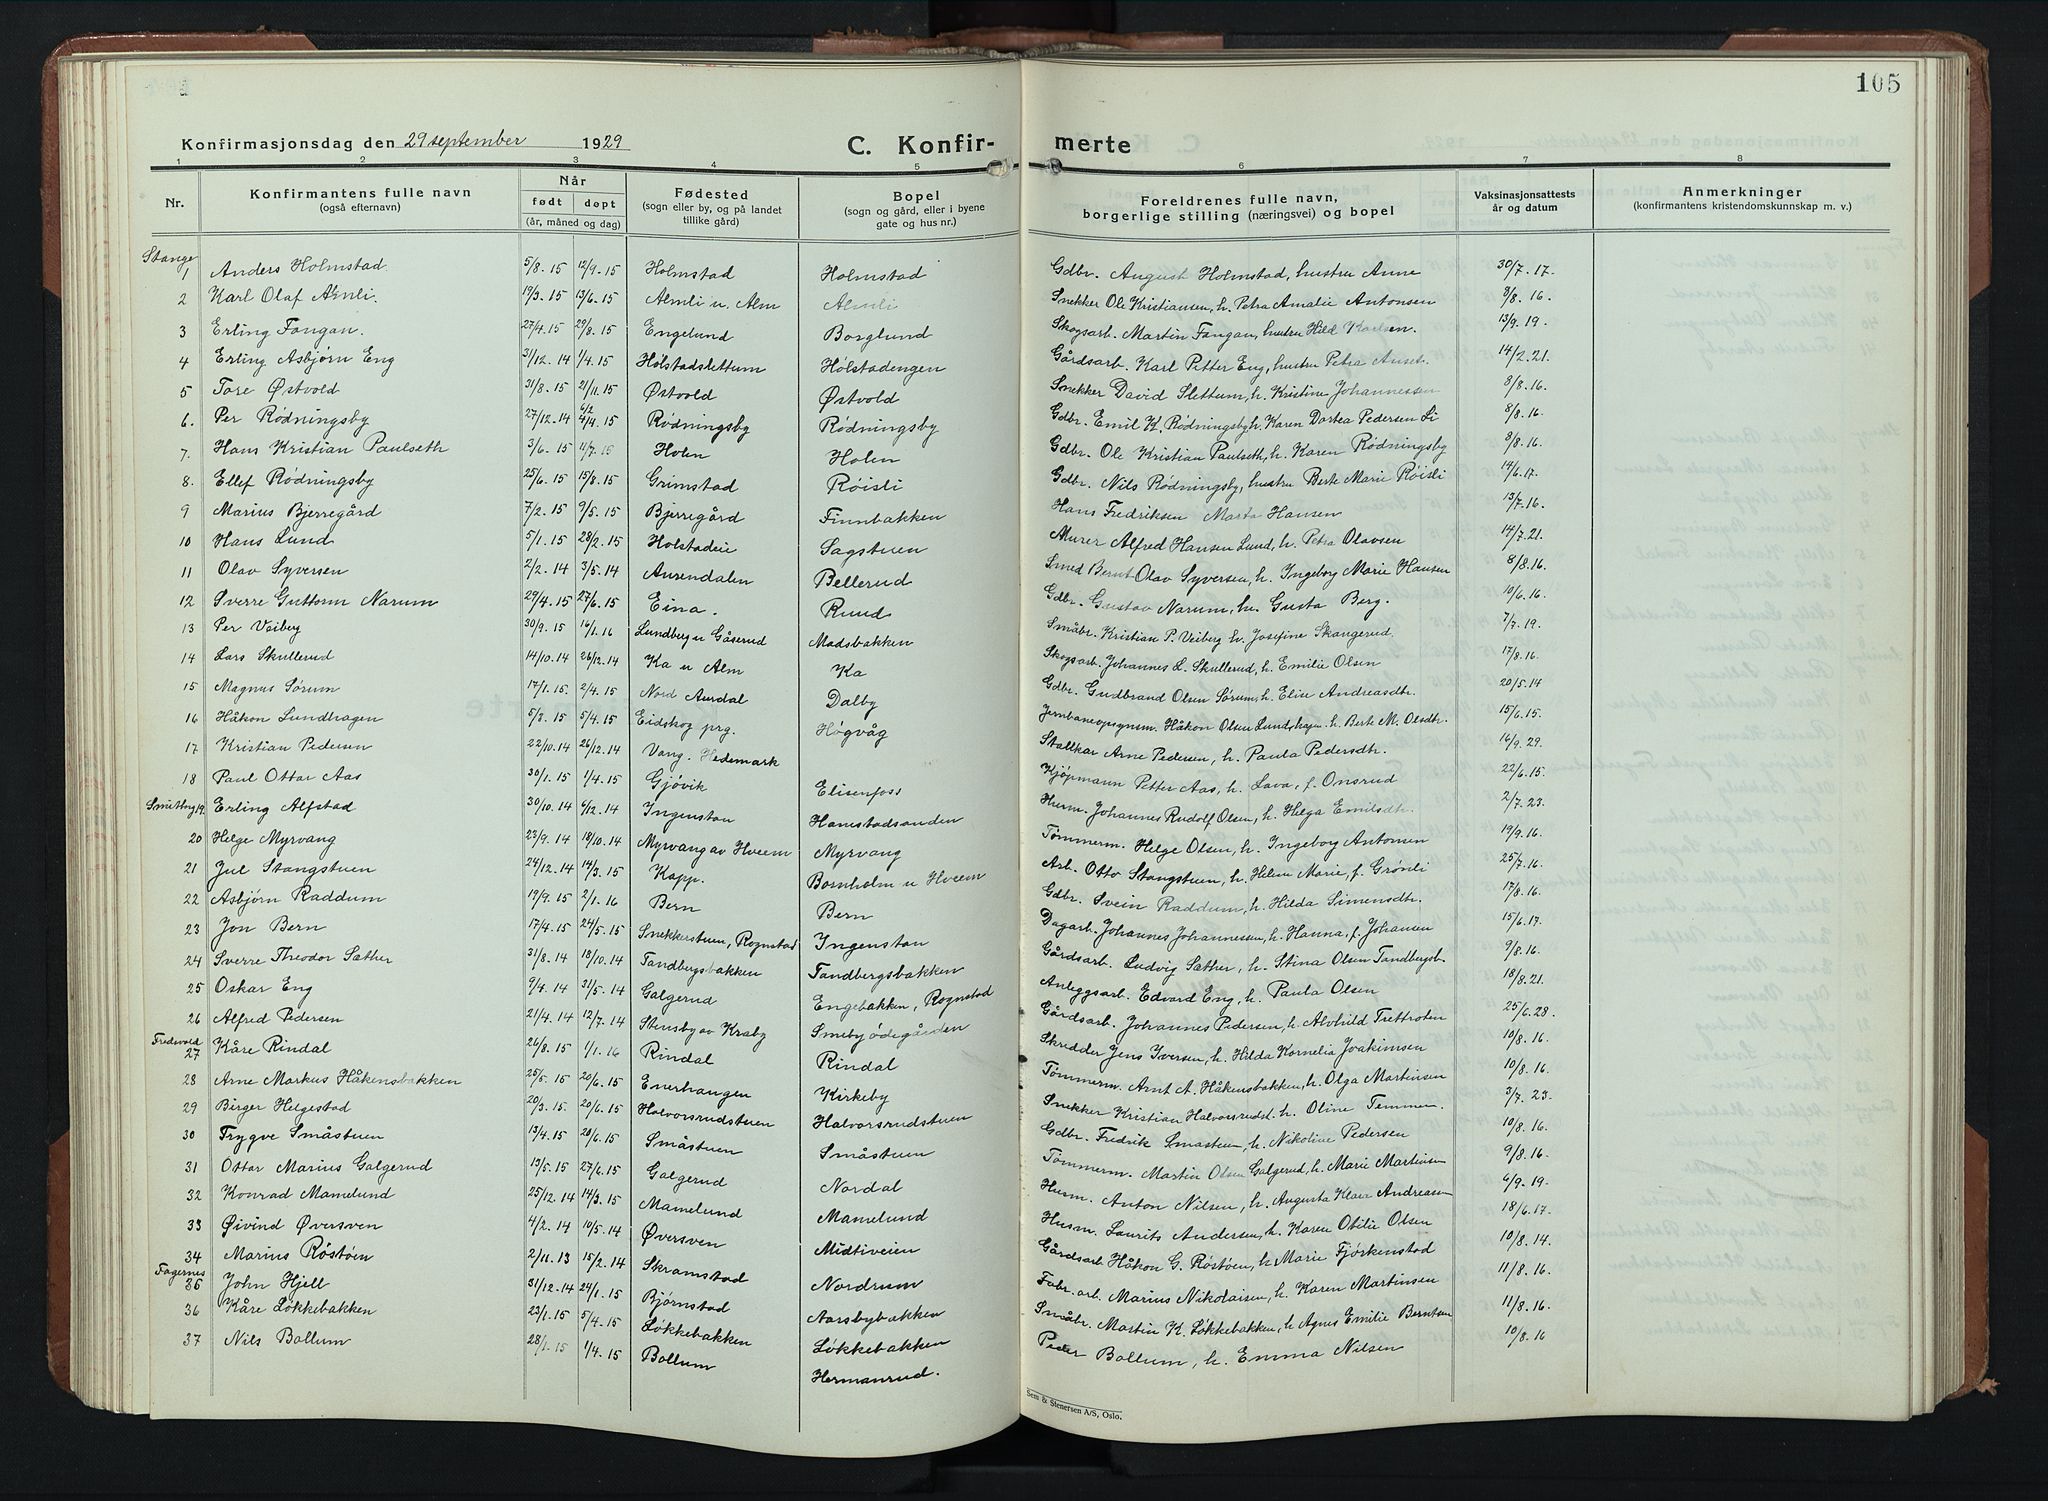 105
Konfirmasjonsdag den 29 september 1929
C. Konfir-
merte
1 2 3 4 5 6 7 8
Nr. | Konfirmantens fulle navn (også efternavn) | Når født døpt (år, måned og dag) | Fødested (sogn eller by, og på landet tillike gård) | Bopel (sogn og gård, eller i byene gate og hus nr.) | Foreldrenes fulle navn, borgerlige stilling (næringsvei) og bopel | Vaksinasjonsattests år og datum | Anmerkninger (konfirmantens kristendomskunnskap m. v.)
Stange
1 Anders Holmstad 5/8. 15 12/9. 15 Holmstad Holmstad Gdbr. August Holmstad, hustru Anne 30/7. 17.
2 Karl Olaf Almli. 19/3. 15 13/6. 15 Almli u. Alm Almli Snekker Ole Kristiansen, h. Petra Amalie Antonsen 8/8. 16.
3 Erling Fangan. 27/4. 15 29/8. 15 Engelund Borglund Skogsarb. Martin Fangan, hustru Hild Karlsen. 13/9. 19.
4 Erling Asbjørn Eng 31/12. 14 1/4. 15 Hólstadslettum Hólstadengen Gårdsarb. Karl Petter Eng, hustru Petra 14/2. 21.
5 Tore Østvold 31/8. 15 21/11. 15 Østvold Østvold Snekker David Slettum, h. Kristine Johannessen 8/8. 16.
6. Per Rødningsby 27/12. 14 4/4. 15 Rødningsby Rødningsby Gdbr. Emil K. Rødningsby h. Karen Dortea Pedersen Li 8/8. 16.
7. Hans Kristian Paulseth 3/6. 15 11/7. 15 Holen Holen Gdbr. Ole Kristian Paulseth, h. Karen Rødningsby 8/8. 16.
8. Ellef Rødningsby 25/6. 15 15/8. 15 Grimstad Róisli Gdbr. Nils Rødningsby, hustru Berte Marie Róisli 14/6. 17.
9 Marius Bjerregård 7/2. 15 9/5. 15 Bjerregård Finnbakken Hans Fredriksen Marta Hansen 13/7. 16.
10 Hans Lund 5/1. 15 28/2. 15 Holstadeie Sagstuen Murer Alfred Hansen Lund, h. Petra Olavsen 14/7. 21.
11 Olav Syversen 2/2. 14 3/5. 14 Aurendalen Bellerud Smed Bernt Olav Syversen, h. Ingeborg Marie Hansen 8/8. 16.
12 Sverre Guttorm Narum 29/4. 15 27/6. 15 Eina. Ruud Gdbr. Gustav Narum, h. Gusta Berg. 10/6. 16.
13 Per Veiberg 30/9. 15 16/1. 16 Lundberg u Gåserud Madsbakken Småbr. Kristian P. Veiberg h. Josefine Skangerud. 7/7. 19.
14 Lars Skullerud 14/10. 14 26/12. 14 Ka u Alm Ka Skogsarb. Johannes L. Skullerud, h. Emilie Olsen 17/8. 16.
15 Magnus Sørum 17/1. 15. 2/4. 15 Nord Aurdal Dalby Gdbr. Gudbrand Olsen Sørum, h. Elise Andreasdtr. 20/5. 14
16 Håkon Lundhagen 5/3. 15 5/4. 15 Eidskog prg. Høgvåg Jernbaneopsynsm. Håkon Olsen Lundhagen. h. Berte M. Olsdtr. 15/6. 15.
17 Kristian Pedersen 22/10. 14 26/12. 14 Vang. Hedemark Stallkar Arne Pedersen, h. Paula Pedersdtr. 16/9. 29.
18 Paul Ottar Aas 30/1. 15 1/4. 15 Gjøvik Elisenfoss Kjøpmann Petter Aas, h. Lava, f. Onsrud 22/6. 15.
19. Erling Alfstad 30/10. 14 6/12. 14 Ingenstan Hanestadsanden Husm. Johannes Rudolf Olsen, h. Helga Emilsdtr. 2/7. 23.
20 Helge Myrvang 23/9. 14 18/10. 14 Myrvang av Hveem Myrvang Tømmerm. Helge Olsen, h. Ingeborg Antonsen 19/9. 16.
21 Jul Stangstuen 24/12. 14 14/3. 15 Kapp. Bornholm u Hveem Arb. Otto Stangstuen, h. Helene Marie, f. Grønli 25/7. 16.
22 Asbjørn Raddum 19/9. 15 2/1. 16 Bern Bern Gdbr. Svein Raddum, h. Hilda Simensdtr. 17/8. 16.
23 Jon Bern 17/4. 15 24/5. 15 Snekkerstuen, Rognstad Ingenstan Dagarb. Johannes Johannessen, h. Hanna, f. Johansen 15/6. 17.
24 Sverre Theodor Sæther 31/8. 14 18/10. 14 Tandbergsbakken Tandbergsbakken Gårdsarb. Ludvig Sæther, h. Stina Olsen Tandbergsb. 9/8. 16.
25 Oskar Eng 9/4. 14 31/5. 14 Galgerud Engebakken, Rognstad Anleggsarb. Edvard Eng, h. Paula Olsen 18/8. 21.
26 Alfred Pedersen 21/4. 14 12/7. 14 Stensby av Kraby Smebyødegården Gårdsarb. Johannes Pedersen, h. Alvhild Trettroten 25/6. 28.
Fredvold
27 Kåre Rindal 26/8. 15 1/1. 16 Rindal Rindal Skredder Jens Iversen, h. Hilda Kornelia Joakimsen 10/8. 16.
28 Arne Markus Håkensbakken 25/5. 15 20/6. 15 Enerhaugen Kirkeby Tømmerm. Arnt A. Håkensbakken, h. Olga Martinsen 10/8. 16.
29 Birger Helgestad 20/3. 15. 20/6. 15 Halvorsrudstuen Halvorsrudstuen Snekker Kristian Halvorsrudst. h. Oline Temmen. 3/7. 23.
30 Trygve Småstuen 13/4. 15 20/6. 15 Småstuen Småstuen Gdbr. Fredrik Småstuen, h. Nikoline Pedersen 10/8. 16.
31 Ottar Marius Galgerud 13/5. 15 27/6. 15 Galgerud Nordal Tømmerm. Martin Olsen Galgerud, h. Marie Martinsen 9/8. 16.
32 Konrad Mamelund 25/12. 14 14/3. 15 Mamelund Mamelund Husm. Anton Nilsen, h. Augusta Klara Andreasen 6/9. 19.
33 Øivind Øversven 4/2. 14 10/5. 14 Øversven Midtiveien Husm. Laurits Andersen, h. Karen Otilie Olsen 18/6. 17.
34 Marius Róstøen 2/11. 13 15/2. 14 Skramstad Nordrum Gårdsarb. Håkon G. Róstøen, h. Marie Fjørkenstad 10/8. 14.
Fagernes
35 John Hjell 31/12. 14 24/1. 15 Bjørnstad Aarsbybakken Fabr. arb. Marius Nikolaisen, h. Karen Martinsen 11/8. 16.
36 Kåre Løkkebakken 23/1. 15 5/4. 15 Løkkebakken Løkkebakken Småbr. Martin K. Løkkebakken, h. Agnes Emilie Berntsen 11/8. 16.
37 Nils Bollum 28/1. 15 1/4. 15 Bollum Hermanrud. Peder Bollum, h. Emma Nilsen 10/8. 16
Sem & Stenersen A/S, Oslo.